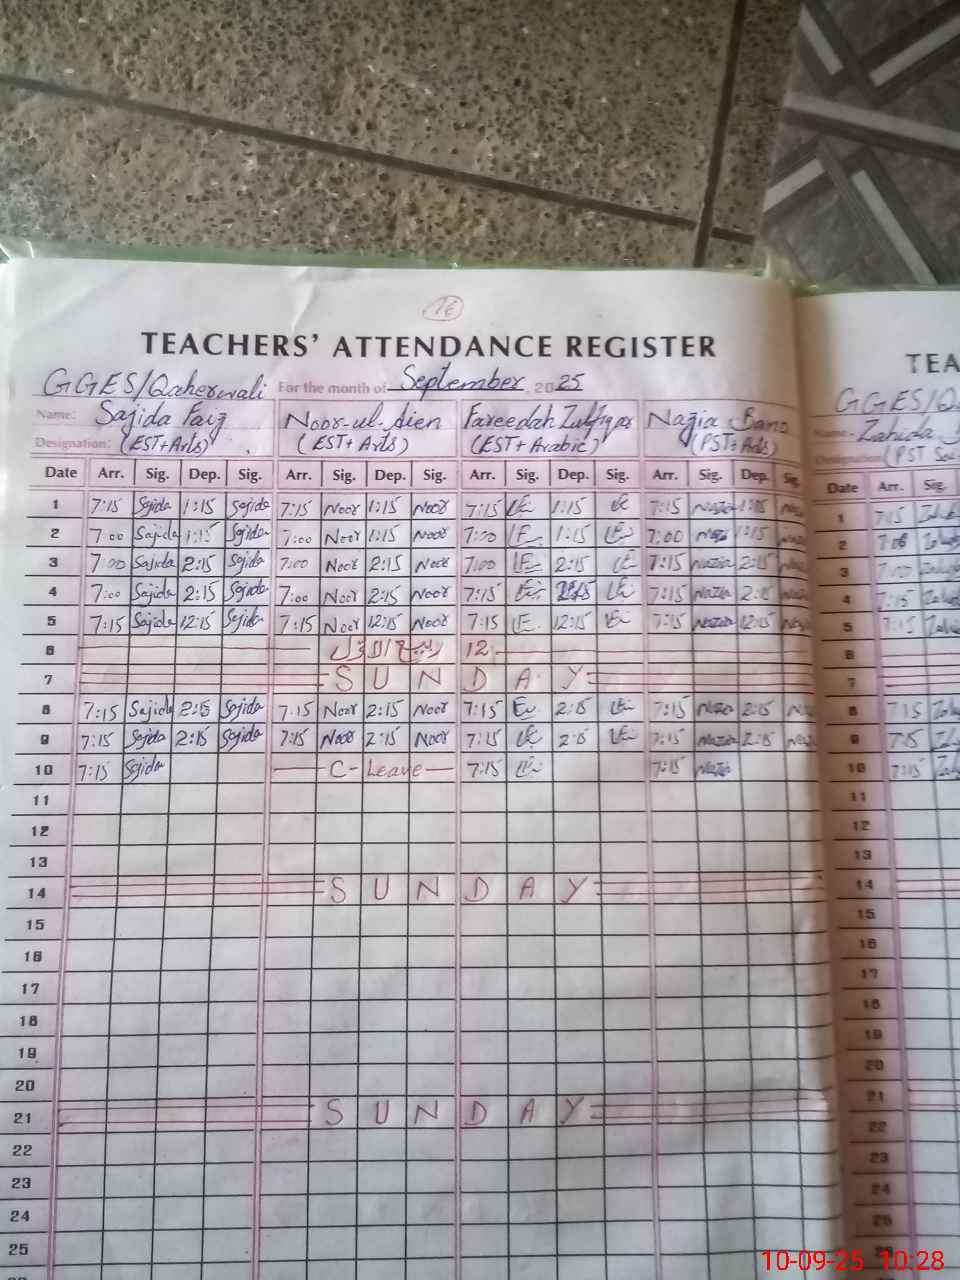 16
TEACHERS' ATTENDANCE REGISTER
GGES/Qaherwali For the month of September, 2025
Name: Sajida Faiz Noor-ul-Aien Fareedah Zulfiqar Nazia Bano
Designation: (EST+Arts) (EST+Arts) (EST+Arabic) (PST+Arts)
Date Arr. Sig. Dep. Sig. Arr. Sig. Dep. Sig. Arr. Sig. Dep. Sig. Arr. Sig. Dep. Sig.
1 7:15 Sajida 1:15 Sajida 7:15 Noor 1:15 Noor 7:15 1:15 7:15 Nazia 1:15
2 7:00 Sajida 1:15 Sajida 7:00 Noor 1:15 Noor 7:00 1:15 7:00 Nazia 1:15
3 7:00 Sajida 2:15 Sajida 7:00 Noor 2:15 Noor 7:00 2:15 7:15 Nazia 2:15
4 7:00 Sajida 2:15 Sajida 7:00 Noor 2:15 Noor 7:00 7:15 Nazia 2:15
5 7:15 Sajida 12:15 Sajida 7:15 Noor 12:15 Noor 7:15 12:15 7:15 Nazia 12:15
6 ربیع الاول 12
7 SUNDAY
8 7:15 Sajida 2:15 Sajida 7:15 Noor 2:15 Noor 7:15 2:15 7:15 Nazia 2:15
9 7:15 Sajida 2:15 Sajida 7:15 Noor 2:15 Noor 7:15 2:15 7:15 Nazia 2:15
10 7:15 Sajida C-Leave 7:15 7:15 Nazia
11
12
13
14 SUNDAY
15
16
17
18
19
20
21 SUNDAY
22
23
24
25
TEA
GGES/Qa
Name: Zahida
Designation (PST
Date Arr. Sig.
1 7:15
2 7:00
3 7:00
4 7:15
5 7:15
6
7
8 7:15
9 7:15
10 7:15
11
12
13
14
15
16
17
18
19
20
21
22
23
24
25
10-09-25 10:28